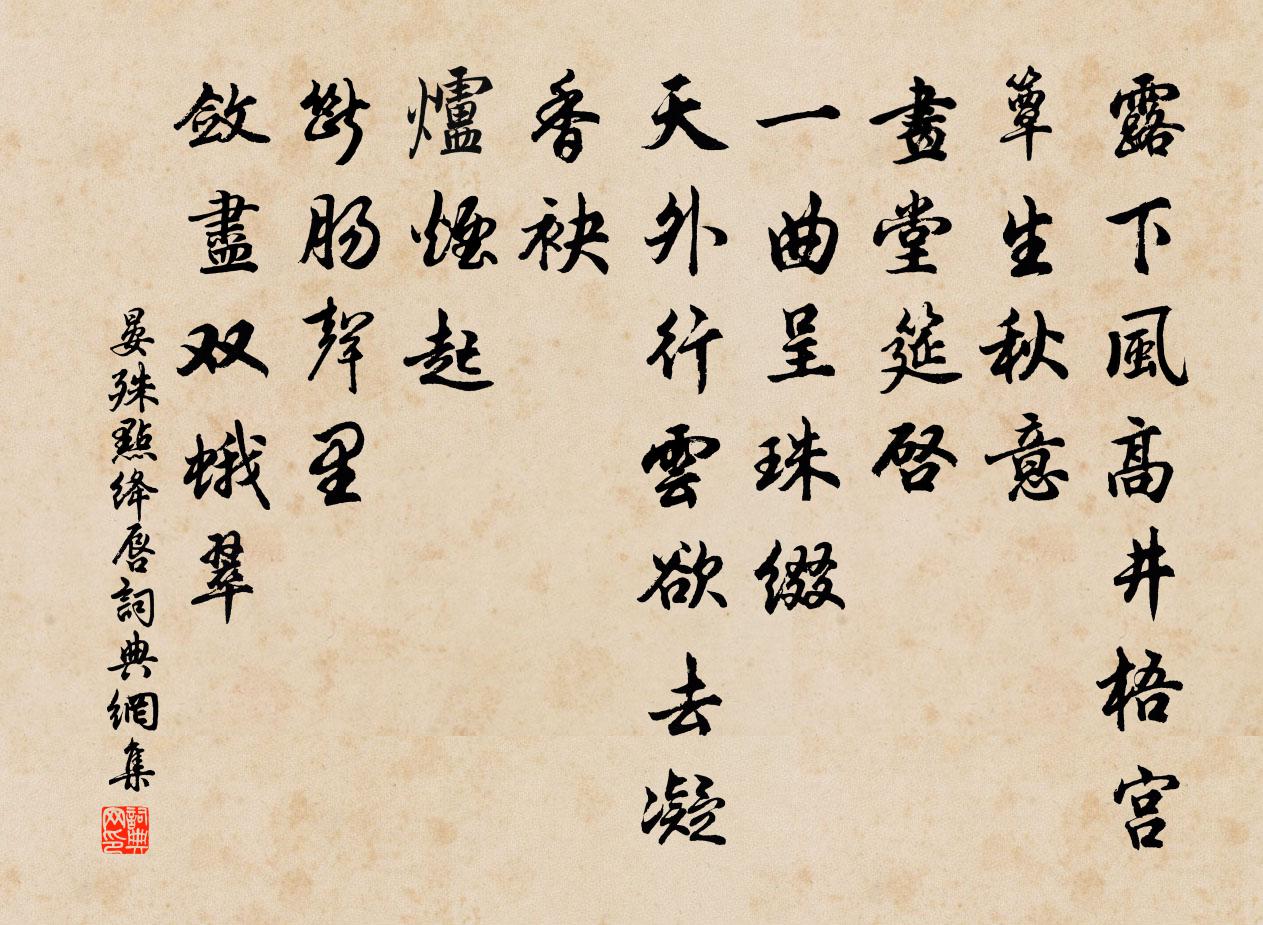 露下風高井梧宫
簟生秋意
畫堂筵啓
一曲呈珠綴
天外行雲欲去凝
香袂
爐煙起
斷肠聲里
斂盡双蛾翠
晏殊點绛唇詞典網集
詞典网印